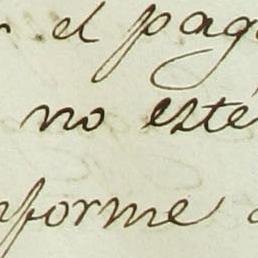 el pag
no esté
nforme